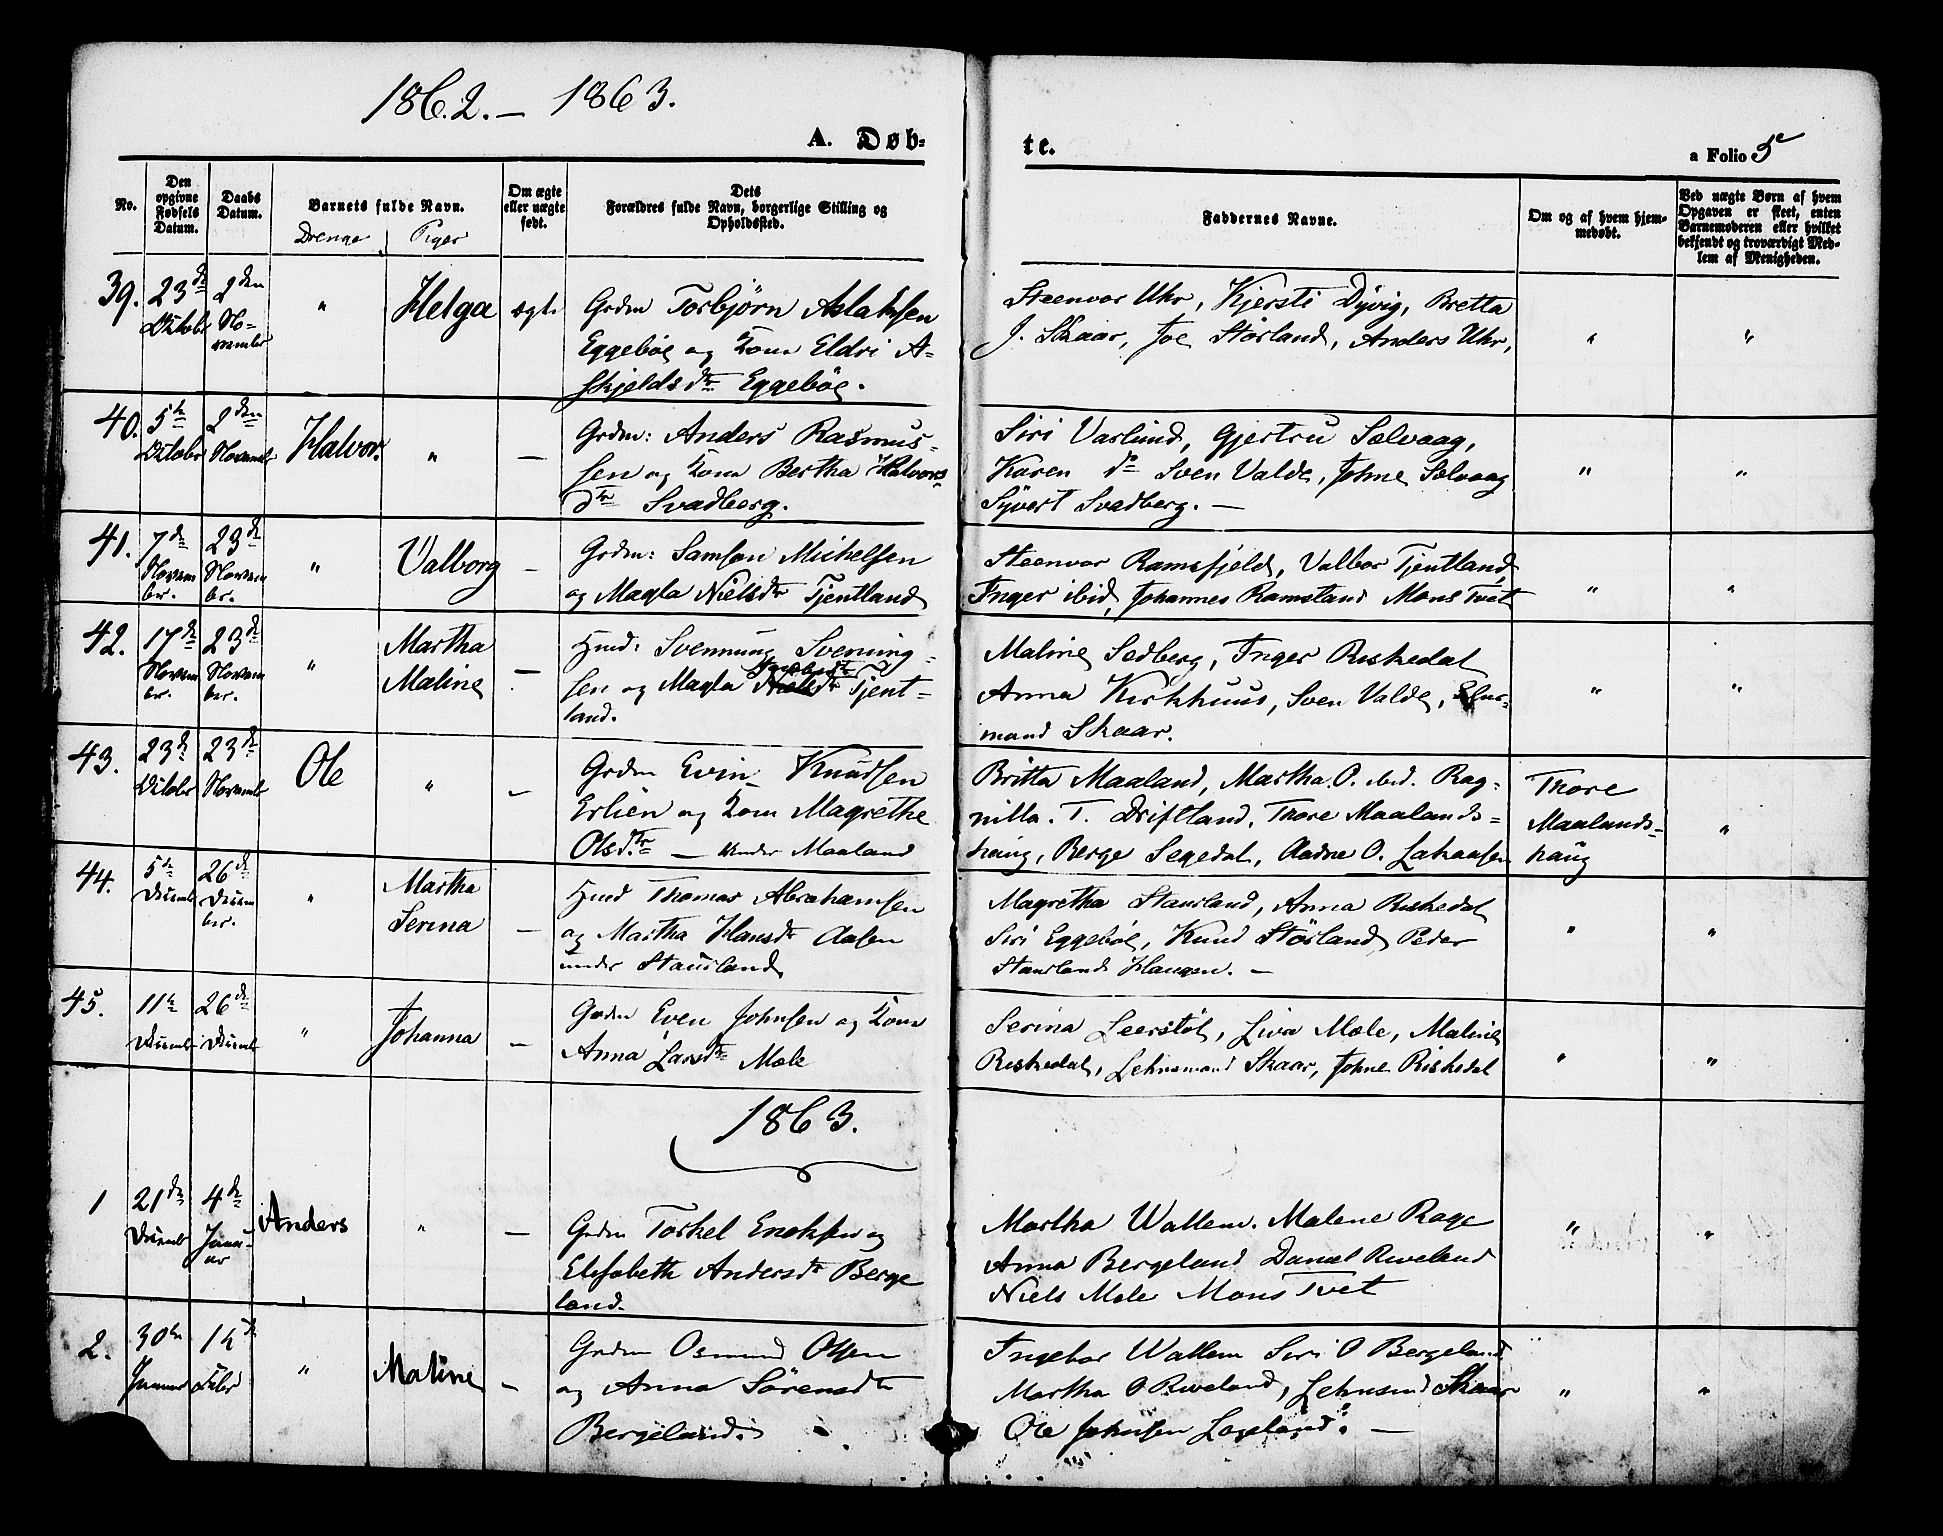 1862. – 1863.
A. Døb-
te.
a Folio 5
No.
Den opgivne Fødsels Datum.
Daabs Datum.
Barnets fulde Navn.
Drenge
Piger
Om ægte eller uægte født.
Dets Forældres fulde Navn, borgerlige Stilling og Opholdssted.
Faddernes Navne.
Om og af hvem hjemmedøbt.
Ved uægte Børn af hvem Opgaven er skeet, enten Barnemoderen eller hvilket bekjendt og troværdigt Medlem af Menigheden.
39. 23de Octobr 2den November " Helga ægte
Grdm Torbjørn Aslaksen
Eggebøe og Kone Eldri A-
skjeldsdtr Eggebøe.
Steenvor Uhr, Kjersti Dÿvig, Bretta
J. Skaar, Joe Størland, Anders Uhr,
" "
40. 5te Octobr 2den Novembr Halvor. " –
Grdm: Anders Rasmus-
sen og Kone Bertha Halvors-
dtr Svadberg.
Siri Varlund, Gjertru Selvaag,
Karen do Sven Valde, Johne Selvaag
Sÿvert Svadberg. –
" "
41. 7de November. 23de November. " Valborg –
Grdm: Samson Michelsen
og Magla Nielsdtr Tjentland
Steenvor Ramsfjeld, Valbor Tjentland,
Inger ibid, Johannes Ramsland Mons Tvet
" "
42. 17de November. 23de November. " Martha Maline –
Hmd: Svennung Svening-
sen og Magla Nielsdtr Tjent-
land.
Maline Sedberg, Inger Riskedal
Anna Kirkhuus, Sven Valde,
mand Skaar.
" "
43. 23de Octobr 23de Novembr Ole " –
Grdm Evin Knudsen
Erlien og Kone Magrethe
Olsdtr – under Maaland
Britta Maaland, Martha O. ibid. Rag-
nilla. T. Driftland, Thore Maalands-
haug, Berge Segedal, Aadne O.
Thore
Maalands-
haug
"
44. 5te Decembr 26de December. " Martha Serina –
Hmd Thomas Abrahamsen
og Martha Hansdtr Aasen
under Stausland
Magretha Stausland, Anna Riskedal
Siri Eggebøe, Knud Størland Peder
Stauslands Haugen. –
" "
45. 11te Decembr 26de Decembr " Johanna –
Grdm Even Johnsen og Kone
Anna Larsdtr Mæle
Serina Leerstøl, Liva Mæle, Maline
Riskedal, Lehnsmand Skaar, Johne Riskedal
" "
1863.
1 21de Decembr 4de Januar Anders " –
Grdm Torkel Enoksen og
Elisabeth Andersdtr Berge
land.
Martha Wallem. Malene Rage
Anna Bergeland Daniel Riveland
Niels Mæle Mons Tvet
" "
2. 30te Januar Febr " Maline –
Grdm Osmund Olsen
og Anna Sørensdtr
Bergeland.
Ingebor Wallem Siri O Bergeland
Martha O Riveland, Lehnsmd Skaar
Ole Johnsen Lageland. –
" "